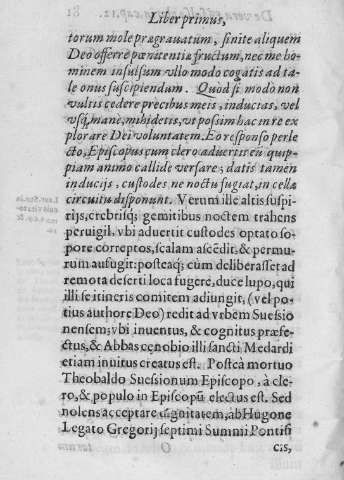 Liber primus,
torum mole prægrauatum, sinite aliquem
Deo offerre pœnitentia fructum, nec me ho-
minem insulsum vllo modo cogatis ad ta-
le onus suscipiendum. Quod si modo non
vultis cedere precibus meis, inducias, vel
vsq; mane, mihi detis, vt possim hac in re ex
plorare Dei voluntatem. Eo responso perle
cto, Episcopus cum clero aduertit eũ quip-
piam animo callide versare; datis tamen
inducijs, custodes ne noctu fugiat, in cellæ
circuitu disponunt. Verum ille altis suspi-
rijs, crebrisq; gemitibus noctem trahens
peruigil, vbi aduertit custodes optato so-
pore correptos, scalam ascẽdit, & permu-
rum aufugit: posteaq; cùm deliberasset ad
remota deserti loca fugere, duce lupo, qui
illi se itineris comitem adiungit, (vel po-
tius authore Deo) redit ad vrbem Suessio
nensem; vbi inuentus, & cognitus præfe-
ctus, & Abbas cœnobio illi sancti Medardi
etiam inuitus creatus est. Posteà mortuo
Theobaldo Suessionum Episcopo, à cle-
ro, & populo in Episcopũ electus est. Sed
nolens acceptare dignitatem, ab Hugone
Legato Gregorij septimi Summi Pontifi
cis,